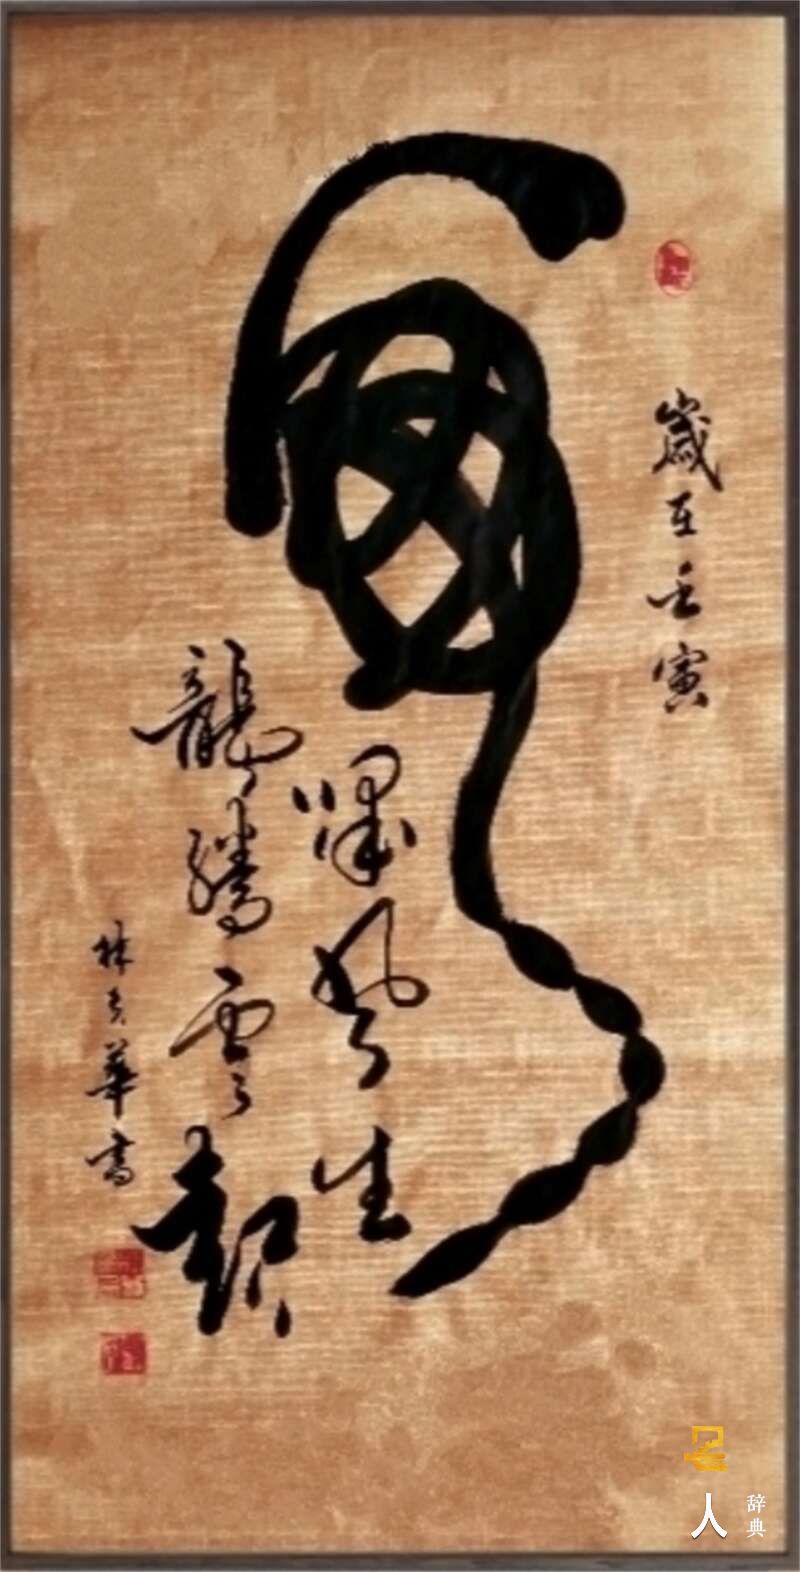 歲在壬寅
虎
嘯風生
龍騰雲起
林華書
人
辞典